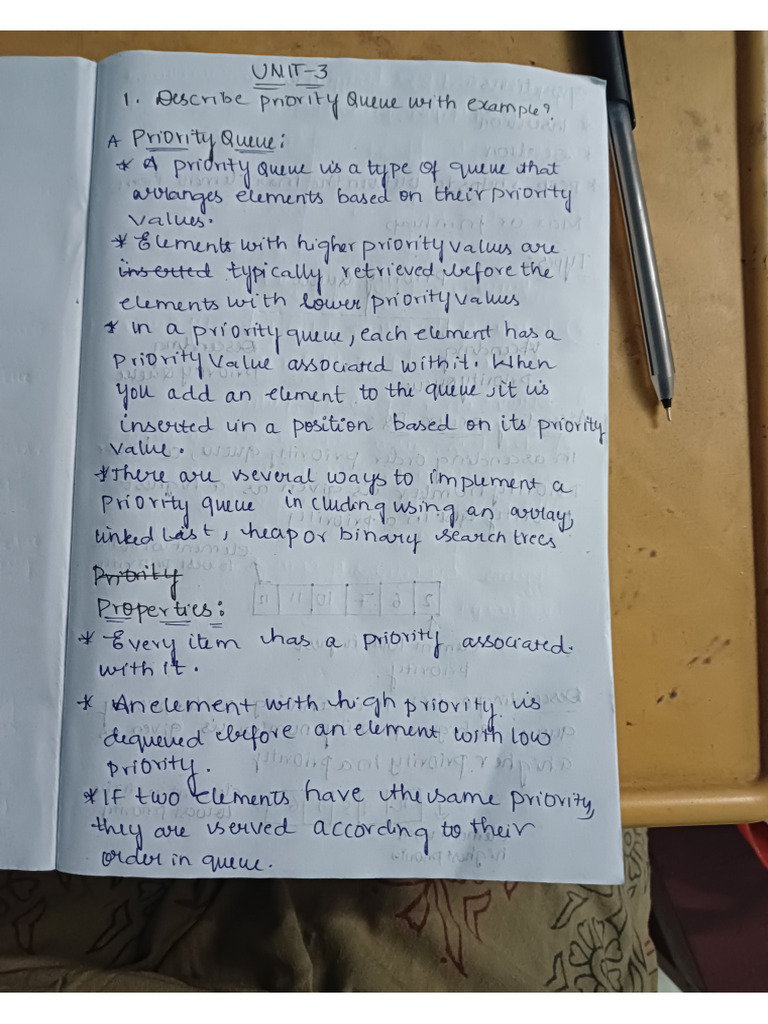 UNIT-3
1. Describe priority Queue with example?
A Priority Queue:
* A priority Queue is a type of queue that
arranges elements based on their priority
values.
* Elements with higher priority values are
inserted typically retrieved before the
elements with lower priority values
* in a priority queue, each element has a
priority value associated with it. When
you add an element to the queue, it is
inserted in a position based on its priority
value.
* There are several ways to implement a
priority queue including using an array,
linked list, heap or binary search trees
Priority
Properties:
* Every item has a priority associated.
with it.
* An element with high priority is
dequeued before an element with low
priority.
* If two elements have the same priority,
they are served according to their
order in queue.